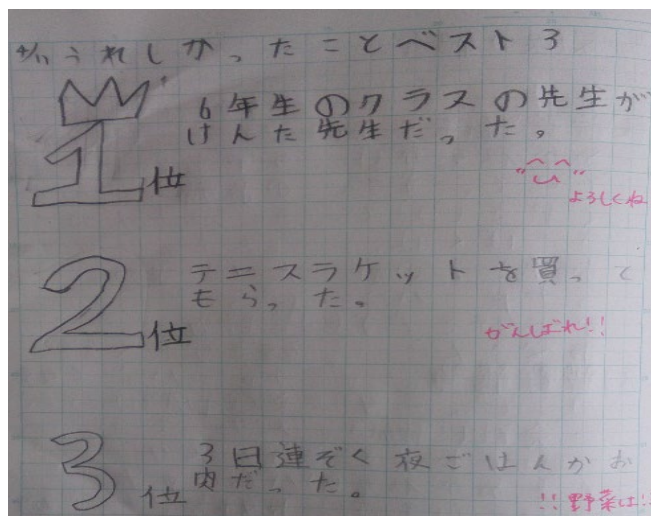 4/11 うれしかったことベスト3
1位
6年生のクラスの先生が
けんた先生だった。
よろしくね
2位
テニスラケットを買って
もらった。
がんばれ!!
3位
3日連ぞく夜ごはんがお
肉だった。
!!野菜は!?